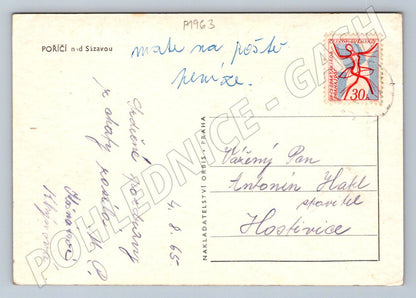 P1963
POŘÍČÍ nad Sázavou
máte na poště
peníze.
30
Srdečné pozdravy
z chaty posílá
4.8.65
NAKLADATELSTVÍ ORBIS - PRAHA
Vážený Pan
Antonín Hakl
Hostivice
POHLEDNICE - GASH